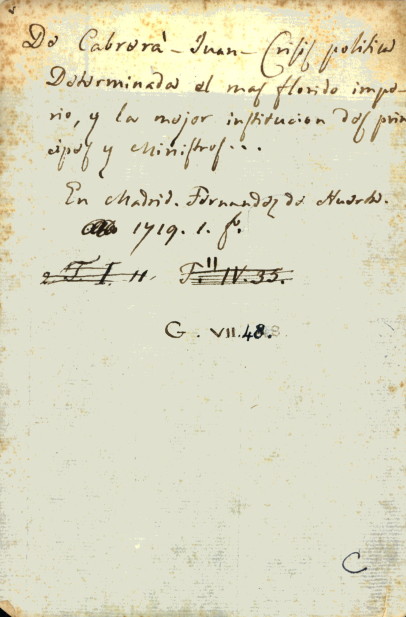 De Cabrera - Juan - Crisis politica
Determinada el mas florido impe-
rio, y la mejor institucion de prin
cipes y Ministros...
En Madrid. Fernandez de Huerta.
1719. 1. f.
2 T. I. 11. F. II IV. 33.
G. VII. 48.
C